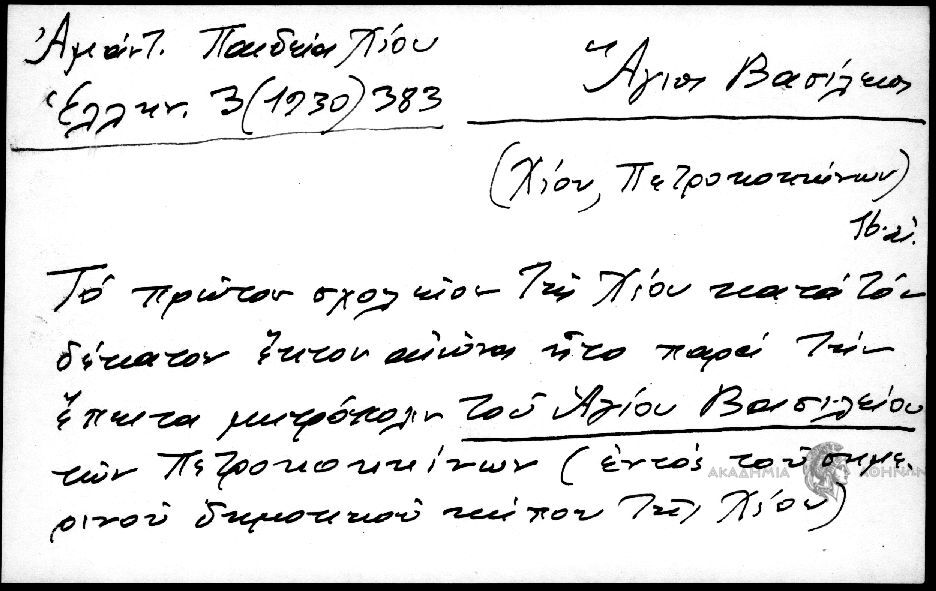 Ἀμάντ. Παιδεία Χίου
Ἑλλην. 3(1930)383
Ἅγιος Βασίλειος
(Χίου, Πετροκοκκίνων)
16.αἰ.
Τό πρῶτον σχολεῖον τῆς Χίου κατά τόν
δέκατον ἕκτον αἰῶνα ἦτο παρά τήν
ἔπειτα μητρόπολιν τοῦ Ἁγίου Βασιλείου
τῶν Πετροκοκκίνων (ἐντός τοῦ σημε-
ρινοῦ δημοτικοῦ κήπου τῆς Χίου)
ΑΚΑΔΗΜΙΑ ΑΘΗΝΩΝ